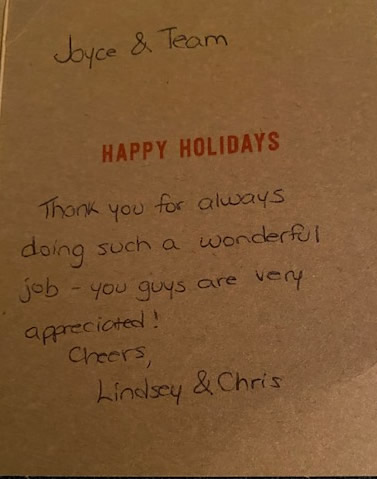 Joyce & Team
HAPPY HOLIDAYS
Thank you for always
doing such a wonderful
job - you guys are very
appreciated!
Cheers,
Lindsey & Chris